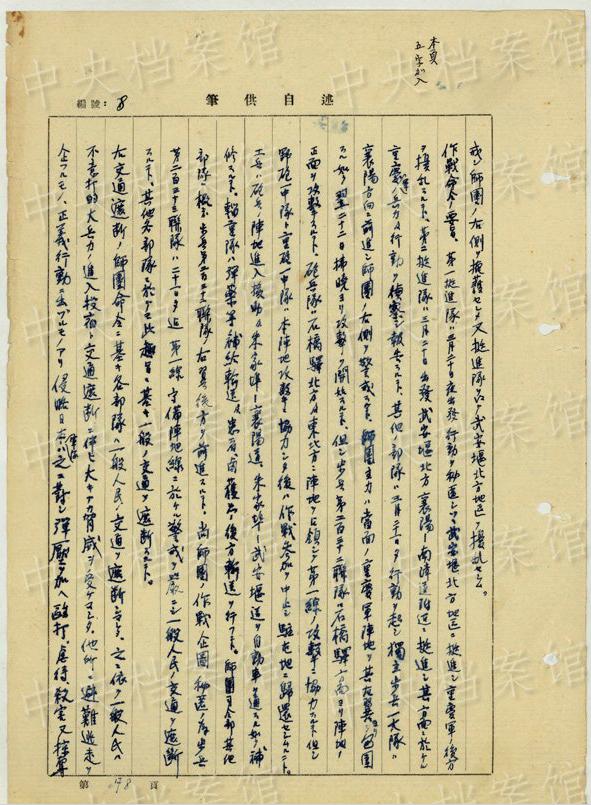 本頁
五字加入
編號：8
述自供筆
ン師團ノ右側ヲ掩護セシメ又挺進隊ヲシテ武安堰北方地区ヲ擾乱セシム。
作戰命令ノ要旨。第一挺進隊ハ三月二十日夜出發行動ヲ秘匿シツツ武安堰北方地区ニ挺進シ重慶軍ノ後方
ヲ擾乱スルト、第二挺進隊ハ三月二十日出發武安堰北方襄陽ー南漳道附近ニ挺進シ其方面ニ於ケル
重慶軍ノ兵力及行動ヲ偵察シ報告スルト、其他ノ部隊ハ三月二十一日夕行動ヲ起シ獨立步兵一大隊ハ
襄陽方向ニ前進シ師團ノ右側ヲ警戒スルト、師團主力ハ當面ノ重慶軍陣地ヲ其右翼ヨリ包囲
スル如ク翌二十二日拂曉ヨリ攻撃ヲ開始スルト。但シ步兵第二百三十二聯隊ハ石橋驛方面ヨリ陣地ノ
正面ヲ攻撃スルト、砲兵隊ハ石橋驛北方及東北方ニ陣地ヲ占領シテ第一線ノ攻撃ニ協力スルト但シ
野砲一中隊ト重砲一中隊ハ本陣地攻撃ニ協力シタ後ハ作戰参加ヲ中止シ駐屯地ニ歸還セシムルト。
工兵ハ砲兵ノ陣地進入援助及朱家埠ー襄陽道、朱家埠ー武安堰道ヲ自動車ヲ通スル如ク補
修スルト、輜重隊ハ彈藥等補給輸送及患者鹵獲品ノ後方輸送ヲ行フト。師團司令部其他
部隊ハ概ネ步兵第二百三十一聯隊ノ右翼後方ヲ前進スルト、尚師團ノ作戰企圖秘匿ノ為步兵
第二百三十三聯隊ハ二十一日夕迄第一線守備陣地線ニ於ケル警戒ヲ嚴ニシ一般人民ノ交通ヲ遮断
スルト、其他各部隊ニ於テモ此趣旨ニ基キ一般ノ交通ヲ遮断スルト。
右交通遮断ノ師團命令ニ基キ各部隊ハ一般人民ノ交通ヲ遮断シマシタ。之ニ依ツテ一般人民ハ
不意打的大兵力ノ進入投宿ト交通遮断ニ伴ヒ大キナル脅威ヲ受ケマシタ、他所ニ避難逃走ヲ
企ツルモノ、正義行動ニ出ヅルモノアリ侵略日本軍ハ之ニ對シ彈壓ヲ加ヘ毆打、虐待、殺害又掠奪
第 頁
中央档案馆